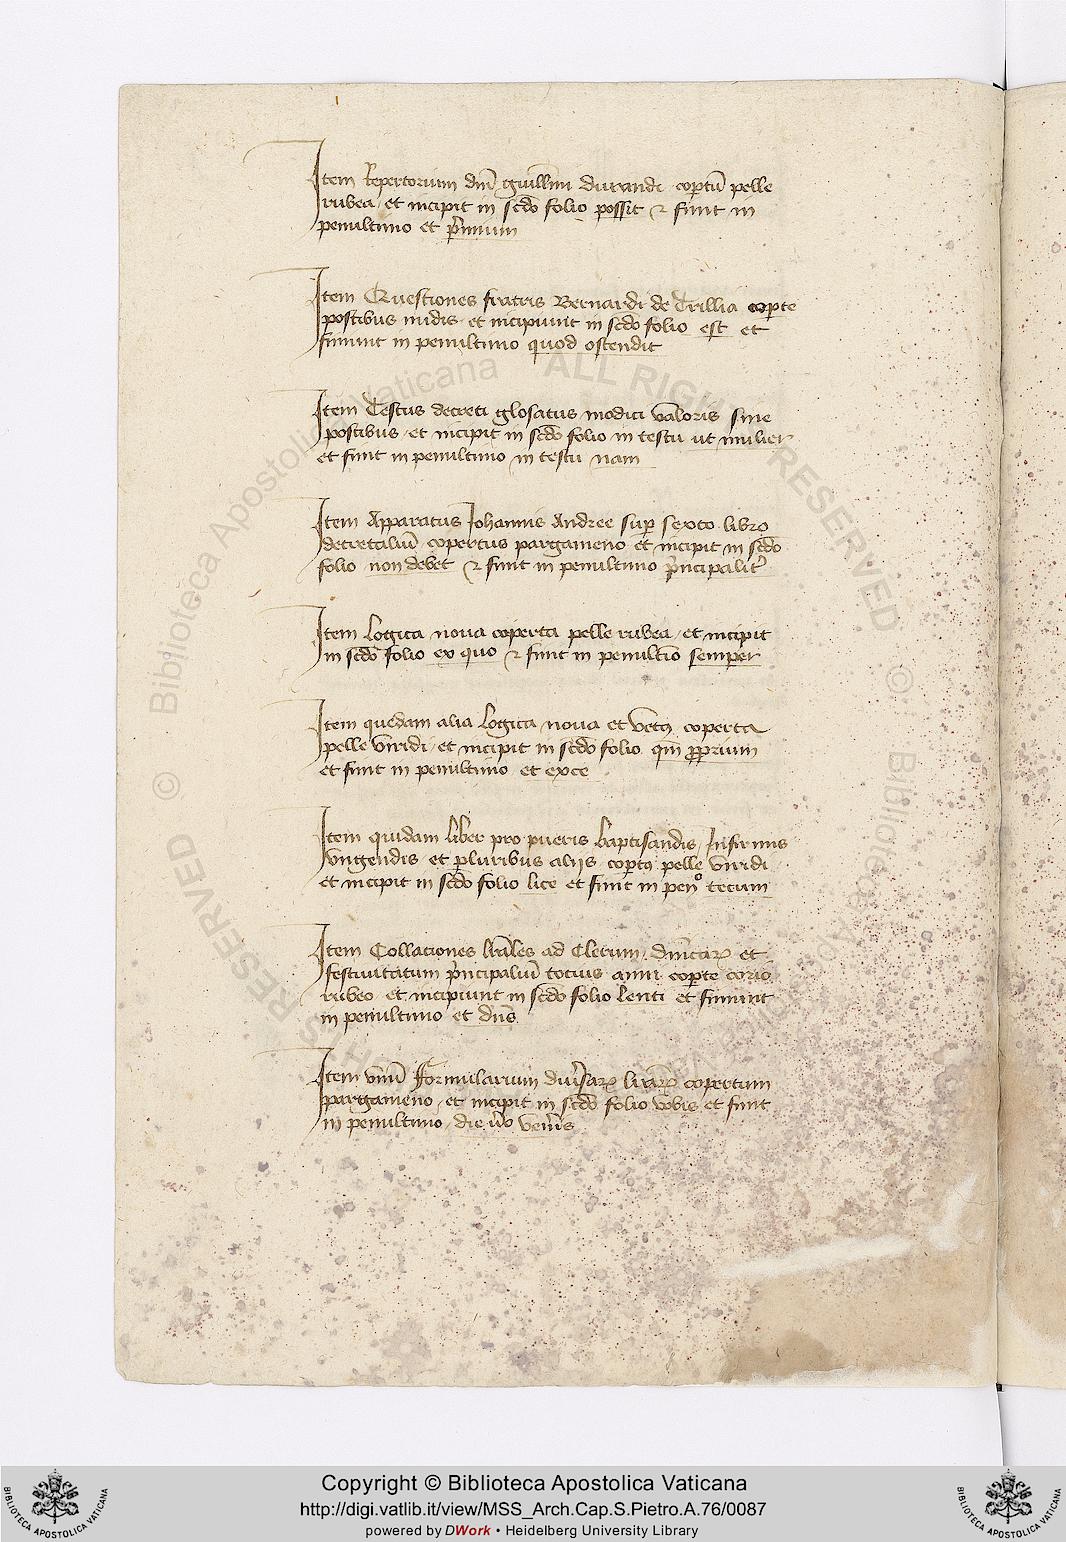 Item Repertorium dnī guillmi durandi coptū pelle
rubea et incipit in scdo folio possit ⁊ finit in
penultimo et p̄mium
Item Questiones fratris Bernardi de Trillia coperte
postibus nudis et incipiunt in scdo folio est et
finiunt in penultimo quod ostendit
Item Testus decreti glosatus modici valoris sine
postibus et incipit in scdo folio in testu ut mulier
et finit in penultimo in testu nam
Item Apparatus Johannis Andree sup sexto libro
decretaliū copertus pargameno et incipit in scdo
folio non debet ⁊ finit in penultimo p̄ncipalit̄
Item Logica noua coperta pelle rubea et incipit
in scdo folio ex quo ⁊ finit in penultīo semper
Item quedam alia Logica noua et vetꝰ coperta
pelle viridi et incipit in scdo folio qm̄ proprium
et finit in penultimo et exce
Item quidam liber pro pueris baptisandis Infirmis
vngendis et pluribus alijs coptꝰ pelle viridi
et incipit in scdo folio lice et finit in penº tecum
Item Collaciones ad Clerum dn̄icarꝝ et
festiuitatum p̄ncipaliū tocius anni copte corio
rubeo et incipiunt in scdo folio lenti et finiunt
in penultimo et dn̄s
Item vnū Formularium diu̾sarꝝ lrarꝝ copertum
pargameno et incipit in scdo folio vobis et finit
in penultimo die vo ven̾is
Copyright © Biblioteca Apostolica Vaticana
http://digi.vatlib.it/view/MSS_Arch.Cap.S.Pietro.A.76/0087
powered by DWork • Heidelberg University Library
BIBLIOTECA APOSTOLICA VATICANA
BIBLIOTECA APOSTOLICA VATICANA
© Biblioteca Apostolica Vaticana ALL RIGHTS RESERVED